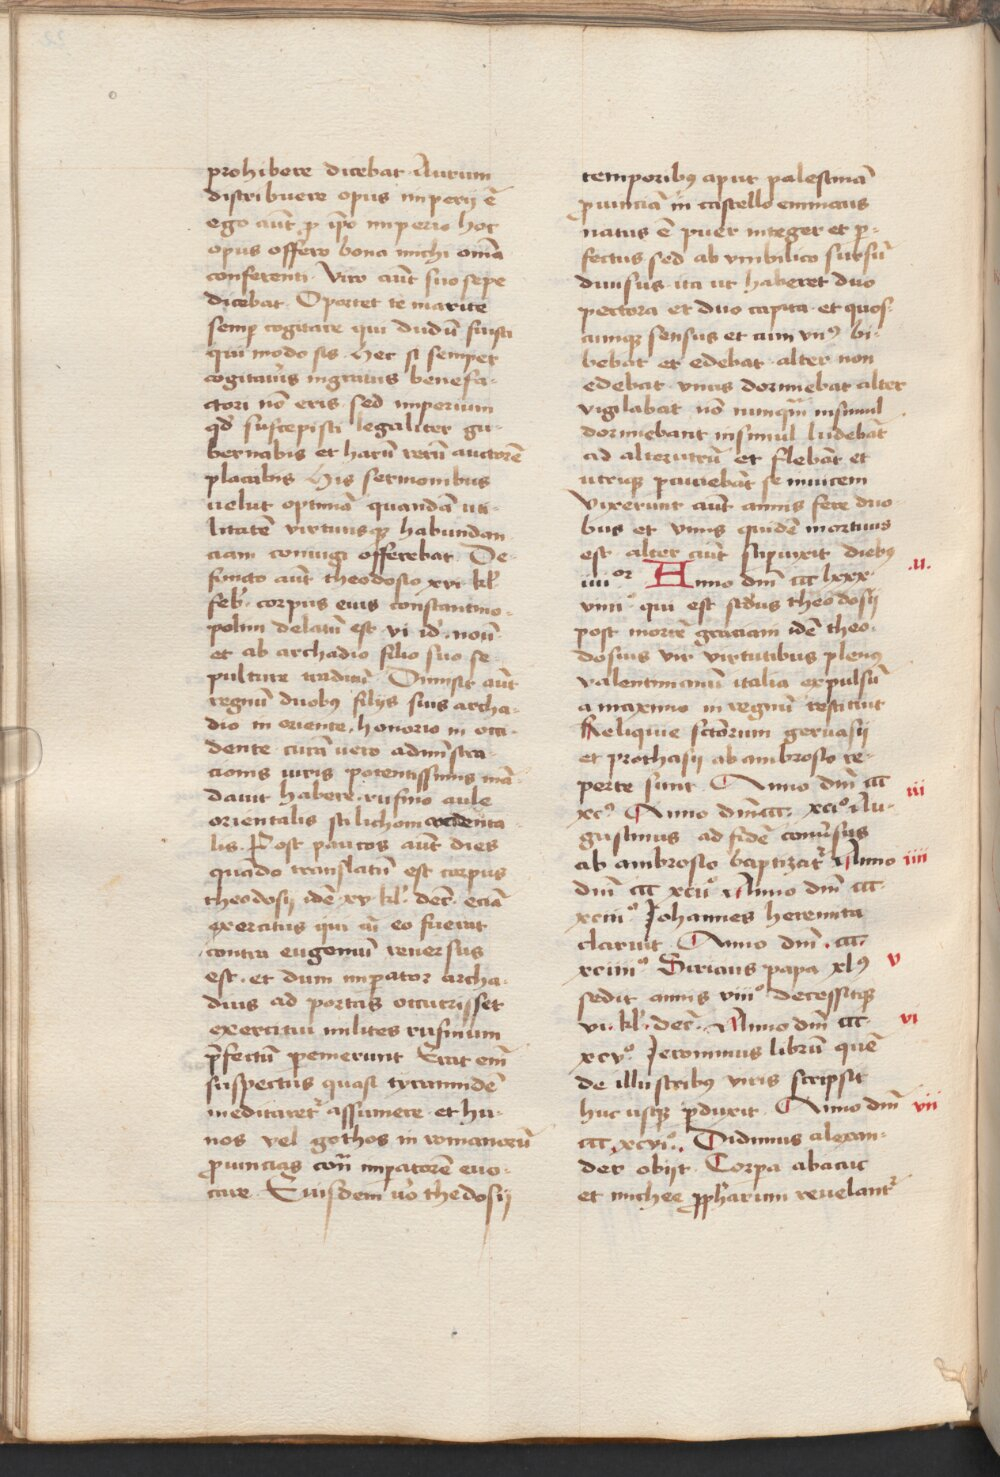 prohibere dicebat Aurum
distribuere opus imperij ē
ego aūt ꝑ ip̄o imperio hoc
opus offero bona michi om̄ia
conferenti. Viro aūt suo sepe
dicebat. Oportet te marite
semꝑ cogitare qui dudū fuisti
qui modo sis. Hec si semper
cogitav̄is ingratus benefa-
ctori nō eris. sed imperium
qd̄ suscepisti legaliter gu-
bernabis et harū rerū auctorē
placabis His sermonibus
uelut optimā quandā uti-
litatē virtutisqꝫ habundan
ciam coniugi offerebat. De-
functo aūt theodosio xvi kl̄
feb̄. corpus eius constantino-
polim delatū est vi id̄. nou̅
et ab archadio filio suo se-
pulture traditū. Dimisit aūt
regnū duobꝰ filijs suis archa-
dio in oriente. honorio in occi-
dente curā uero adminꝰstra-
cionis iuris potentissimis mā-
dauit habere. rufino aule
orientalis stilichoni occidenta
lis. Post paucos aūt dies
quādo translatū est corpus
theodosij idē xv kl̄. dec̄. eciā
exercitus qui cū eo fuerat
contra eugeniū reuersus
est. et dum imperator archa-
dius ad portas occurrisset
exercitui milites rufinum
p̄fectū peremerunt Erat em̄
suspectus quasi tyrannidē
meditaretᷣ assumere et hu-
nos vel gothos in romanorū
ꝓuincias cont̄ imꝑatorē euo-
care. Eiusdem v̄o thedosij
temporibꝰ aput palestinā
ꝓuinciā in castello emmaus
natus ē puer integer et ꝑ-
fectus sed ab vmbilico sursū
diuisus. ita ut haberet duo
pectora et duo capita. et quos-
cumqꝫ sensus et cum vnꝰ bi-
bebat et edebat. alter non
edebat. vnus dormiebat alter
vigilabat nō nunqͣm insimul
dormiebant insimul ludebāt
ad alterutrū et flebāt et
utriqꝫ pauiebāt se inuicem
Vixerunt aūt annis fere duo-
bus et vnus quidē mortuus
est alter aūt supuixit diebꝰ
iiiiᵒʳ Anno dnī ccc lxxx. .ii.
viiiiᵒ. qui est scd̄us theodosij
post mortē graciani idē theo-
dosius vir virtutibus plenꝰ
valentinianū italia expulsū
a maximo in regnū restituit
Reliquie sctōrum geruasij
et prothasij ab ambrosio re-
perte sunt Anno dnī ccc iii
xcᵒ Anno dnī ccc. xciᵒ Au-
gustinus ad fidē conūsus
ab ambrosio baptizatᷣ Anno iiii
dnī ccc xciiᵒ Anno dnī ccc.
xciiiᵒ Johannes heremita
claruit Anno dnī. ccc.
xciiiiᵒ Siricius papa xlꝰ v
sedit annis viiiiᵒ decessitqꝫ
vi. kl̄. dec̄. Anno dnī ccc. vi
xcvᵒ. Jeronimus librū quē
de illustribꝰ viris scripsit
huc usqꝫ ꝑduxit. Anno dnī vii
ccc.xcviᵒ. Didimus alexan-
der obijt. Corpa abacuc
et michee ꝓph̄arum reuelantᷣ